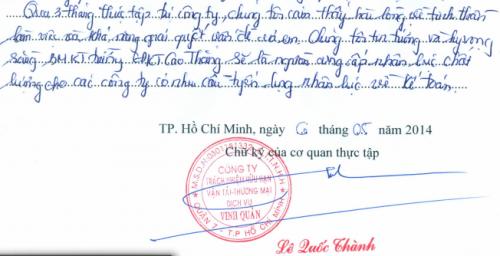 Qua 3 tháng thực tập tại công ty, chúng tôi cảm thấy hài lòng về tinh thần
làm việc và khả năng giải quyết vấn đề của em. Chúng tôi tin tưởng và kỳ vọng
rằng BM.KT trường CĐKT Cao Thắng sẽ là người cung cấp nhân lực chất
lượng cho các công ty có nhu cầu tuyển dụng nhân lực về kế toán.
TP. Hồ Chí Minh, ngày 6 tháng 05 năm 2014
Chữ ký của cơ quan thực tập
CÔNG TY
TRÁCH NHIỆM HỮU HẠN
VẬN TẢI-THƯƠNG MẠI
DỊCH VỤ
VINH QUÂN
T.P HỒ CHÍ MINH
Lê Quốc Thành